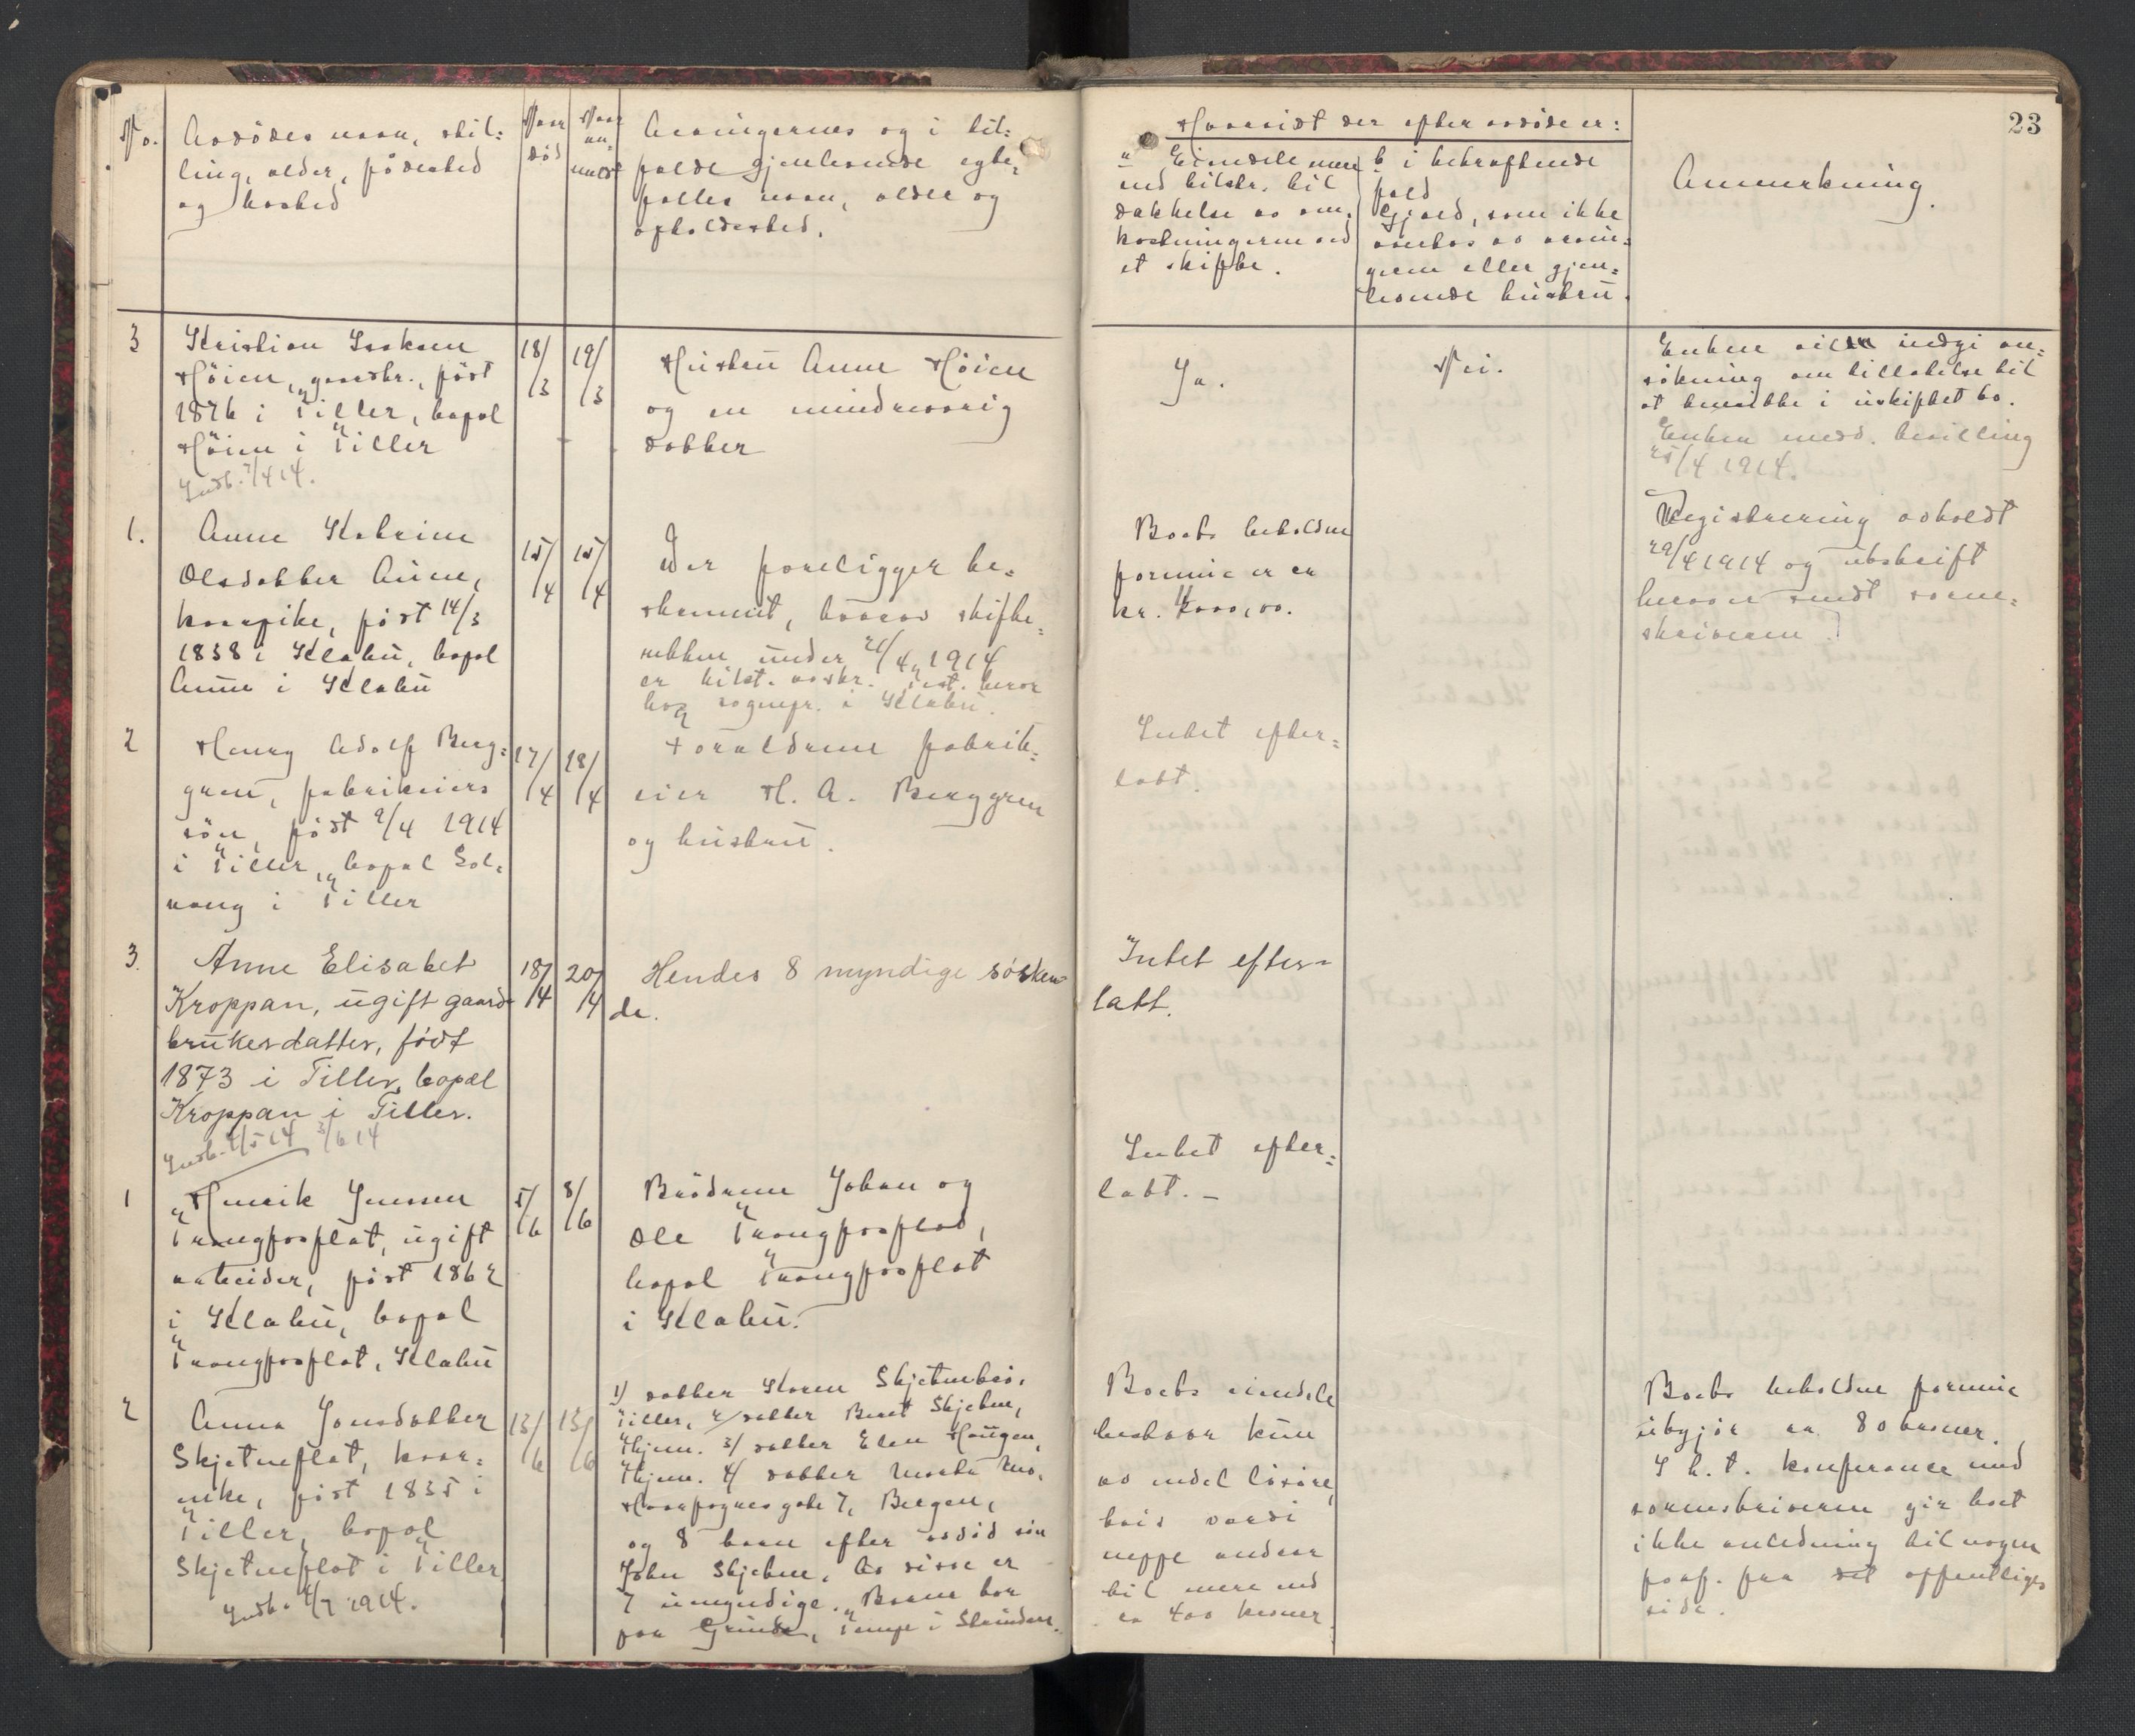 No.
Avdödes navn, stil=
ling, alder, födested
og bosted
Naar
död
Naar
an=
meldt
Arvingernes og i til=
fælde gjenlevende egte=
fælles navn, alder og
opholdssted.
Hvorvidt der efter avdöde er:
a Eiendele mere
end tilstr. til
dækkelse av om=
kostningerne ved
et skifte.
b. i bekræftende
fald
Gjæld, som ikke
overtas av arvin=
gerne eller gjen=
levende hustru.
Anmerkning.
23
3
Kristian Isaksen
Höien, gaardbr., födt
1876 i Tiller, bopæl
Höien i Tiller
Indb. 7/4 14.
18/3
19/3
Hustru Anne Höien
og en mindreaarig
datter
Ja.
Nei.
Enken vil indgi an=
sökning om tilladelse til
at hensitte i uskiftet bo.
Enken medd. bevilling
25/4 1914.
1.
Anne Katrine
Olsdatter Aune,
kaarpike, födt 14/3
1838 i Klæbu, bopæl
Aune i Klæbu
15/4
15/4
Der foreligger te=
stament, hvorav skifte=
retten under 21/4 1914
er tilst. avskr. Test. beror
hos sognepr. i Klæbu.
Boets beholdne
formue er ca
kr. 4000,00.
Registrering avholdt
29/4 1914 og utskrift
herav er sendt soren=
skriveren.
2
Henry Adolf Berg=
gren, fabrikeiers
sön, födt 9/4 1914
i Tiller, bopæl Sol=
vang i Tiller
17/4
18/4
Forældrene fabrik=
eier H. A. Berggren
og hustru.
Intet efter=
latt.
3.
Anne Elisabet
Kroppan, ugift gaard=
brukerdatter, födt
1873 i Tiller, bopæl
Kroppan i Tiller.
Indb. 4/5 14 3/6 14
18/4
20/4
Hendes 8 myndige sösken=
de.
Intet efter=
latt.
1
Henrik Jenssen
Trangfosflat, ugift
arbeider, födt 1862
i Klæbu, bopæl
Trangfosflat, Klæbu
5/6
8/6
Brödrene Johan og
Ole Trangfosflat,
bopæl Trangfosflat
i Klæbu.
Intet efter=
latt. –
2
Anna Jonsdatter
Skjetneflat, kaar=
enke, födt 1835 i
Tiller, bopæl
Skjetneflat i Tiller
Indb. 4/7 1914.
13/6
13/6
1/ datter Karen Skjetnebrö,
Tiller, 2/ datter Beret Skjetne,
Hjem. 3/ datter Elen Haugen,
Hjem. 4/ datter Marta
gate 7, Bergen,
og 8 barn efter avdöd sön
John Skjetne. Av disse er
7 umyndige. Barne bor
paa Grinde, Tempe i Strinden.
Boets eiendele
bestaar kun
av endel lösöre,
hvis værdi
neppe andrar
til mere end
ca 400 kroner
Boets beholdne formue
utgjör ca. 80 kroner.
I h. t. konferance med
sorenskriveren gir boet
ikke anledning til nogen
forf. fra det offentliges
side.